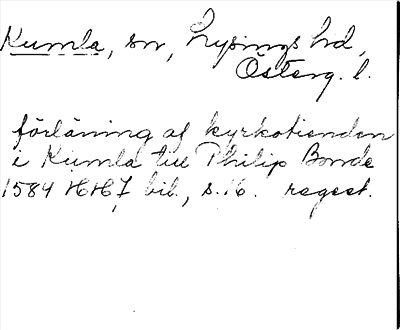 Kumla, sn, Lysings hd,
Österg. l.
förläning af kyrkotienden
i Kumla till Philip Bonde
1584 HH7, bil., s. 16. regest.